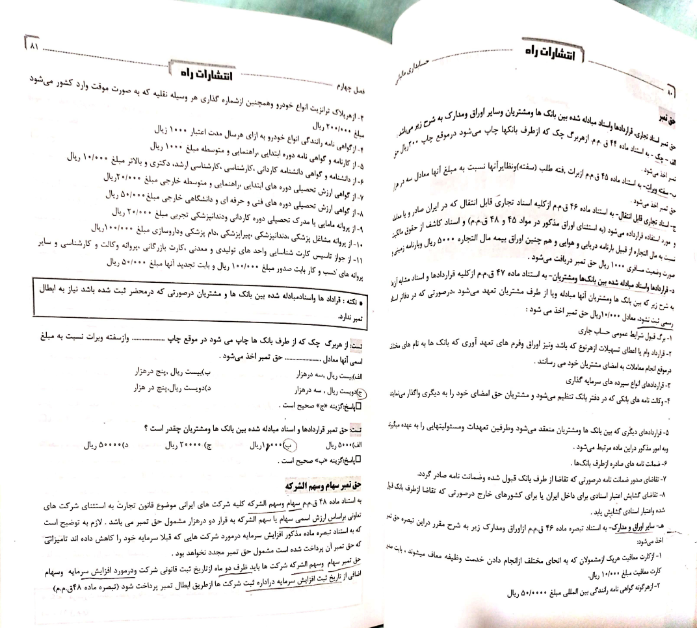 انتشارات راه
حسابداری مالیاتی
حق تمبر
حق تمبر اسناد تجاری، قراردادها واسناد مبادله شده بین بانک ها ومشتریان وسایر اوراق ومدارک به شرح زیر می باشد
الف- چک - به استناد ماده ۴۴ ق.م.م ازهربرگ چک که ازطرف بانکها چاپ می شود درموقع چاپ ۲۰۰ ریال حق
تمبر اخذ می شود.
ب- سفته وبرات- به استناد ماده ۴۵ ق.م.م ازبرات، فته طلب (سفته) ونظایرآنها نسبت به مبلغ آنها معادل سه در هزار
حق تمبر اخذ می شود.
ج- اسناد تجاری قابل انتقال- به استناد ماده ۴۶ ق.م.م ازکلیه اسناد تجاری قابل انتقال که در ایران صادر ویا معامله
و مورد استفاده قرارداده می شود (به استثنای اوراق مذکور در مواد ۴۵ و ۴۸ ق.م.م) و اسناد کاشف از حقوق مالکیت
نسبت به مال التجاره از قبیل بارنامه دریایی و هوایی و هم چنین اوراق بیمه مال التجاره ۵۰۰۰ ریال وبارنامه زمینی و
صورت وضعیت مسافری ۱۰۰۰ ریال حق تمبر دریافت می شود.
د- قراردادها واسناد مبادله شده بین بانک‌ها ومشتریان- به استناد ماده ۴۷ ق.م.م ازکلیه قراردادها و اسناد مشابه
به شرح زیر که بین بانک ها ومشتریان آنها مبادله ویا از طرف مشتریان تعهد می شود ،درصورتی که در دفاتر اسناد
رسمی ثبت نشود، معادل ۱۰/۰۰۰ ریال حق تمبر اخذ می شود :
۱- برگ قبول شرایط عمومی حساب جاری
۲- قرارداد وام یا اعطای تسهیلات ازهرنوع که باشد، ونیز اوراق وفرم های تعهد آوری که بانک ها به نام های مختلف
درموقع انجام معاملات به امضای مشتریان خود می رسانند .
۳- قراردادهای انواع سپرده های سرمایه گذاری
۴- وکالت نامه های بانکی که در دفتر بانک تنظیم می‌شود و مشتریان حق امضای خود را به دیگری واگذار می‌نمایند
۵- قراردادهای دیگری که بین بانک ها ومشتریان منعقد می‌شود وطرفین تعهدات ومسئولیتهایی را به عهده میگیرند
وبه امور مذکور دراین ماده مرتبط می‌شود .
۶- ضمانت نامه های صادره ازطرف بانک‌ها .
۷- تقاضای صدور ضمانت نامه درصورتی که تقاضا از طرف بانک قبول شده وضمانت نامه صادر گردد.
۸- تقاضای گشایش اعتبار اسنادی برای داخل ایران یا برای کشورهای خارج درصورتی که تقاضا ازطرف بانک قبول
شده واعتبار اسنادی گشایش یابد .
هـ- سایر اوراق و مدارک- به استناد تبصره ماده ۴۶ ق.م.م ازاوراق ومدارک زیر به شرح مقرر دراین تبصره حق تمبر
اخذ می‌شود:
۱- ازکارت معافیت هریک ازمشمولان که به انحای مختلف ازانجام دادن خدمت وظیفه معاف میشوند ، بابت صدور
کارت معافیت مبلغ ۱۰/۰۰۰ ریال.
۲- ازهرگونه گواهی نامه رانندگی بین المللی مبلغ ۵۰/۰۰۰۰ ریال
۸۱
انتشارات راه
فصل چهارم
۳- ازهرپلاک ترانزیت انواع خودرو وهمچنین ازشماره گذاری هر وسیله نقلیه که به صورت موقت وارد کشور می‌شود
مبلغ ۲۰۰/۰۰۰ ریال
۴- ازگواهی نامه رانندگی انواع خودرو به ازای هرسال مدت اعتبار ۱۰۰۰ ریال
۵- از کارنامه و گواهی نامه دوره ابتدایی ،راهنمایی و متوسطه مبلغ ۱۰۰۰ ریال
۶- از دانشنامه و گواهی دانشنامه کاردانی ،کارشناسی ،کارشناسی ارشد، دکتری و بالاتر مبلغ ۱۰/۰۰۰ ریال
۷- از گواهی ارزش تحصیلی دوره های ابتدایی ،راهنمایی و متوسطه خارجی مبلغ ۲۰/۰۰۰ ریال
۸- از گواهی ارزش تحصیلی دوره های فنی و حرفه ای و دانشگاهی خارجی مبلغ ۵۰/۰۰۰ ریال
۹- از پروانه مامایی یا مدرک تحصیلی دوره کاردانی ودندانپزشکی تجربی مبلغ ۲۰/۰۰۰ ریال
۱۰- از پروانه مشاغل پزشکی ،دندانپزشکی ،پیراپزشکی ،دام پزشکی وداروسازی مبلغ ۱۰۰/۰۰۰ ریال
۱۱- از جواز تاسیس کارت شناسایی واحد های تولیدی و معدنی ،کارت بازرگانی ،پروانه وکالت و کارشناسی و سایر
پروانه های کسب و کار بابت صدور مبلغ ۱۰۰/۰۰۰ ریال و بابت تجدید آنها مبلغ ۵۰/۰۰۰ ریال
● نکته : قراداد ها واسنادمبادله شده بین بانک ها و مشتریان درصورتی که درمحضر ثبت شده باشد نیاز به ابطال
تمبر ندارد.
تست: از هربرگ چک که از طرف بانک ها چاپ می شود در موقع چاپ .................. وازسفته وبرات نسبت به مبلغ
اسمی آنها معادل .................. حق تمبر اخذ می‌شود .
الف)بیست ریال ،سه درهزار
ب)بیست ریال ،پنج درهزار
ج)دویست ریال ، سه درهزار
د)دویست ریال،پنج در هزار
پاسخ:گزینه «ج» صحیح است .
تست: حق تمبر قراردادها و اسناد مبادله شده بین بانک ها ومشتریان چقدر است ؟
الف)۵۰۰۰ ریال
ب)۱۰۰۰۰ریال
ج) ۲۰۰۰۰ ریال
د)۵۰۰۰۰ ریال
پاسخ:گزینه «ب» صحیح است .
حق تمبر سهام وسهم الشرکه
به استناد ماده ۴۸ ق.م.م سهام وسهم الشرکه کلیه شرکت های ایرانی موضوع قانون تجارت به استثنای شرکت های
تعاونی براساس ارزش اسمی سهام یا سهم الشرکه به قرار دو درهزار مشمول حق تمبر می باشد . لازم به توضیح است
که به استناد تبصره ماده مذکور افزایش سرمایه درمورد شرکت هایی که قبلا سرمایه خود را کاهش داده اند تامیزانی
که حق تمبر آن پرداخت شده است مشمول حق تمبر مجدد نخواهد بود .
حق تمبر سهام وسهم الشرکه شرکت ها باید ظرف دو ماه ازتاریخ ثبت قانونی شرکت ودرمورد افزایش سرمایه وسهام
اضافی از تاریخ ثبت افزایش سرمایه دراداره ثبت شرکت ها ازطریق ابطال تمبر پرداخت شود (تبصره ماده ۴۸ق.م.م)